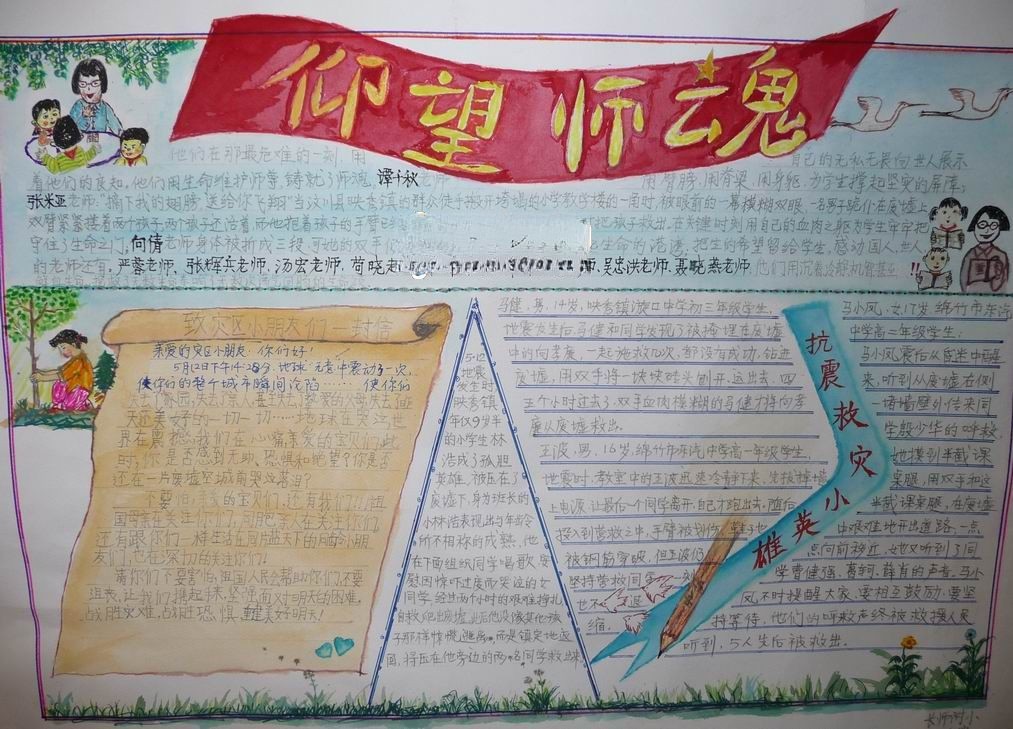 仰望师魂
他们在那最危难的一刻,用
自己的无私无畏向世人展示
着他们的良知,他们用生命维护师尊,铸就了师魂。谭千秋老师
用臂膀,用脊梁,用身躯,为学生撑起坚实的屏障;
张米亚老师,"摘下我的翅膀,送给你飞翔"当汶川县映秀镇的群众徒手搬开垮塌的小学教学楼的一角时,被眼前的一幕模糊双眼,一名男子跪仆在废墟上
双臂紧紧搂着两个孩子,两个孩子还活着,而他抱着孩子的手臂已
把孩子救出。在关键时刻用自己的血肉之躯为学生牢牢把
守住了生命之门,向倩老师身体被折成三段,可她的双手
生命的港湾,把生的希望留给学生,感动国人、世人
的老师还有,严蓉老师、张辉兵老师、汤宏老师、苟晓超
吴忠洪老师、聂晓燕老师
他们用沉着冷静机智甚至
致灾区小朋友们一封信
亲爱的灾区小朋友:你们好!
5月12日下午14:28分,地球元老中震动了一次,
使你们的整个城市瞬间沦陷……使你们
失去了家园,失去了亲人甚至失去挚爱的父母,失去
天还美好的一切一切……地球在哭泣,世
界在震撼,我们在心痛亲爱的宝贝们,此
时,你是否感到无助、恐惧和绝望?你是否
还在一片废墟至城前哭泣落泪?
不要怕,亲爱的宝贝们,还有我们!!!祖
国母亲在关注你们,
亲人在关注你们
还有跟你们一样生活在同片蓝天下的所有小朋
友们,也在深切的关注你们!
请你们不要害怕,祖国人民会帮助你们,不要
沮丧,让我们携起手来,坚强面对明天的困难,
战胜灾难,战胜恐惧,重建美好明天!
5·12
地震
发生时
映秀镇
年仅9岁半
的小学生林
浩成了孤胆
英雄,被压在了
废墟下,身为班长的
小林浩表现出与年龄
所不相称的成熟,他
在下面组织同学唱歌,安
慰因惊吓过度而哭泣的女
同学,经过两个小时的艰难挣扎
自救爬出废墟,此后他没像其他孩
子那样惊慌逃离,而是镇定地返
回,将压在他旁边的两名同学救出来
马健,男,14岁,映秀镇漩口中学初三年级学生,
地震发生后马健和同学发现了被掩埋在废墟
中的向孝廉,一起施救几次,都没有成功,钻进
废墟,用双手将一块块砖头刨开,运出去,四
五个小时过去了,双手血肉模糊的马健才将向孝
廉从废墟救出。
王波,男,16岁,绵竹市东汽中学高一年级学生,
地震时,教室中的王波迅速冷静下来,先拔掉墙
上电源,让最后一个同学离开,自己才跑出来,随后
投入到营救之中,手臂被划伤,鞋子也
被钢筋穿破,但王波仍
坚持营救同学,一刻
也不退
缩。
抗震救灾小英雄
马小凤,女,17岁,绵竹市东汽
中学高二年级学生:
马小凤震后从昏迷中醒
来,听到从废墟右侧
一堵墙壁外传来同
学殷少华的呼救,
她摸到半截课
桌腿,用双手和这
半截课桌腿,在废墟
中艰难地开出道路,一点
点向前移近,她又听到了同
学费健强、葛轲、薛肖的声音。马小
凤不时提醒大家,要相互鼓励,要坚
持等待,他们的呼救声终被救援人员
听到,5人先后被救出。
长师附小